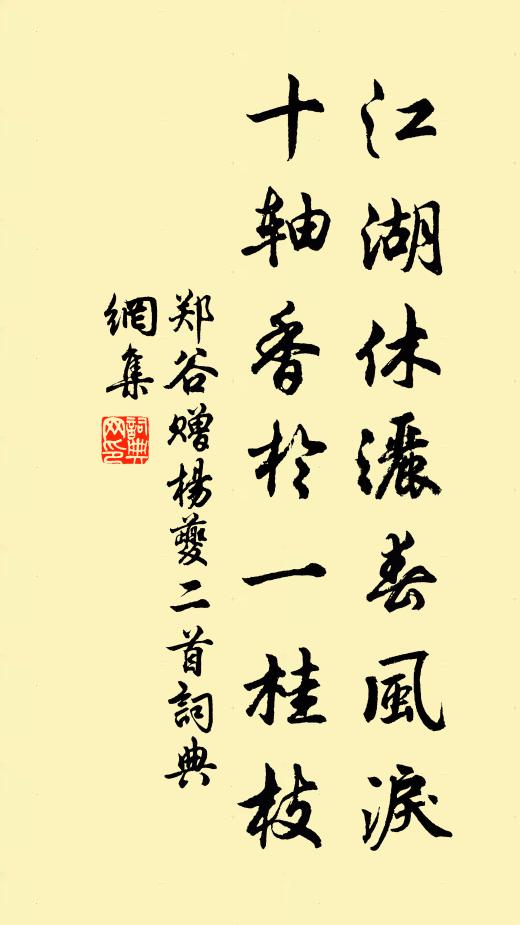 江湖休灑春風淚
十軸香於一桂枝
郑谷赠楊夔二首詞典
網集
詞典
网印